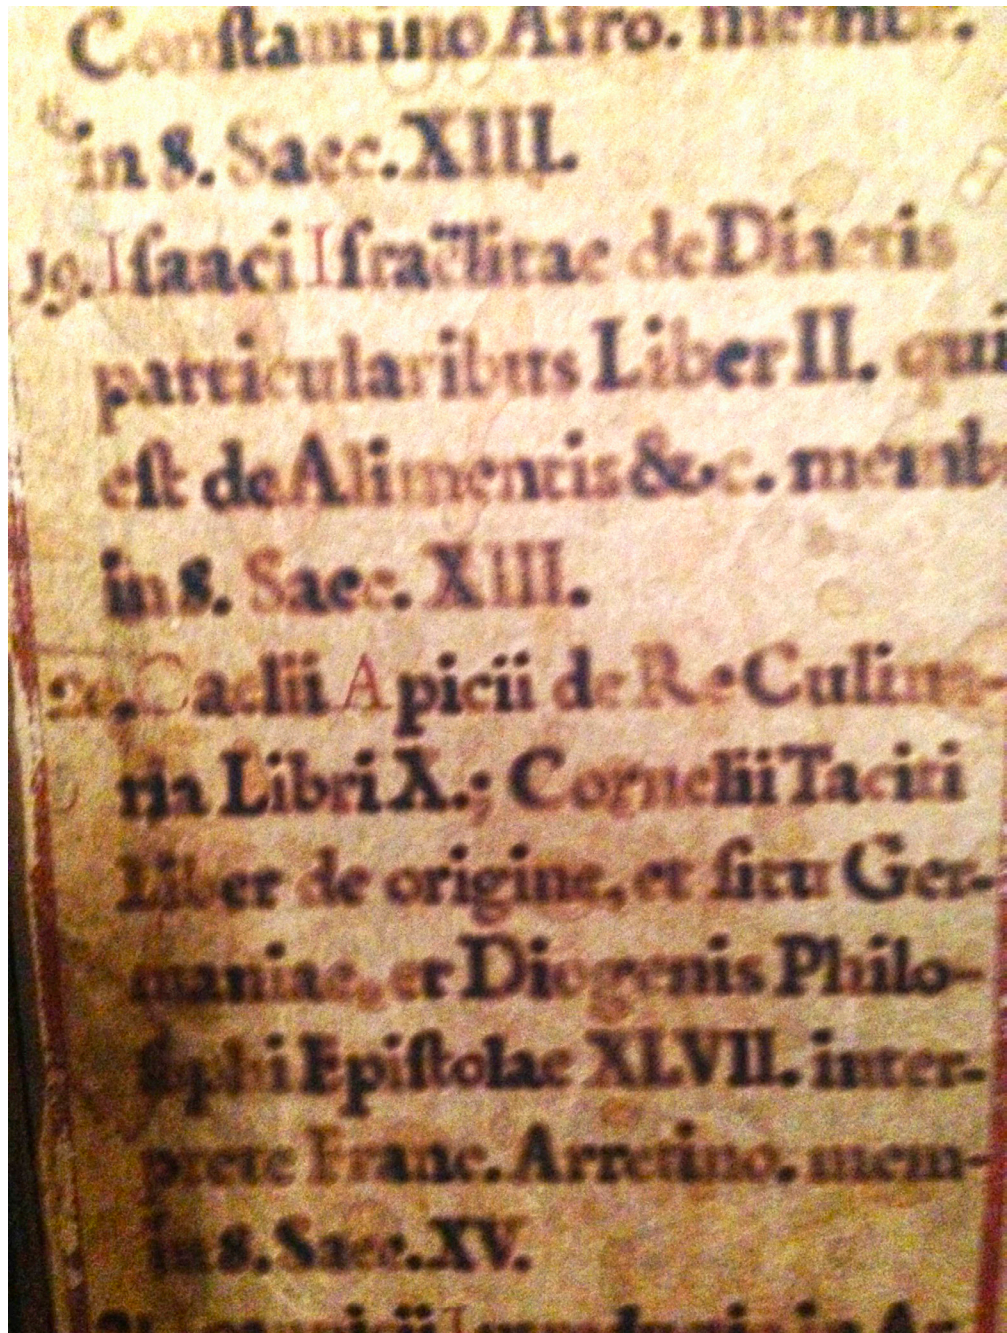 Conſtantino Afro. membr.
in 8. Saec. XIII.
19. Iſaaci Iſraëlitae de Diaetis
particularibus Liber II. qui
eſt de Alimentis &c. memb
in 8. Saec. XIII.
20. Caelii Apicii de Re Culina-
ria Libri X.; Cornelii Taciti
Liber de origine, et ſitu Ger-
maniae, et Diogenis Philo-
ſophi Epiſtolae XLVII. inter-
prete Franc. Arretino. mem-
in 8. Saec. XV.